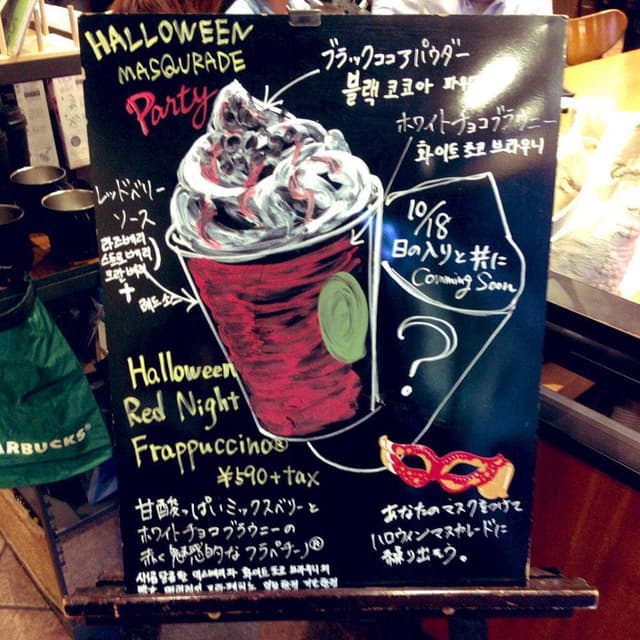 HALLOWEEN
MASQURADE
Party
ブラックココアパウダー
블랙 코코아 파우
ホワイトチョコブラウニー
화이트 초코 브라우니
レッドベリー
ソース
라즈베리
스트로베리
블랙베리
+
레드 소스
10/18
日の入りと共に
Comming Soon
?
Halloween
Red Night
Frappuccino®
¥590+tax
甘酸っぱいミックスベリーと
ホワイトチョコブラウニーの
赤く魅惑的なフラペチーノ®
새콤달콤한 믹스베리와 화이트 초코 브라우니의
あなたのマスクをつけて
ハロウィンマスカレードに
繰り出そう。
ARBUCKS